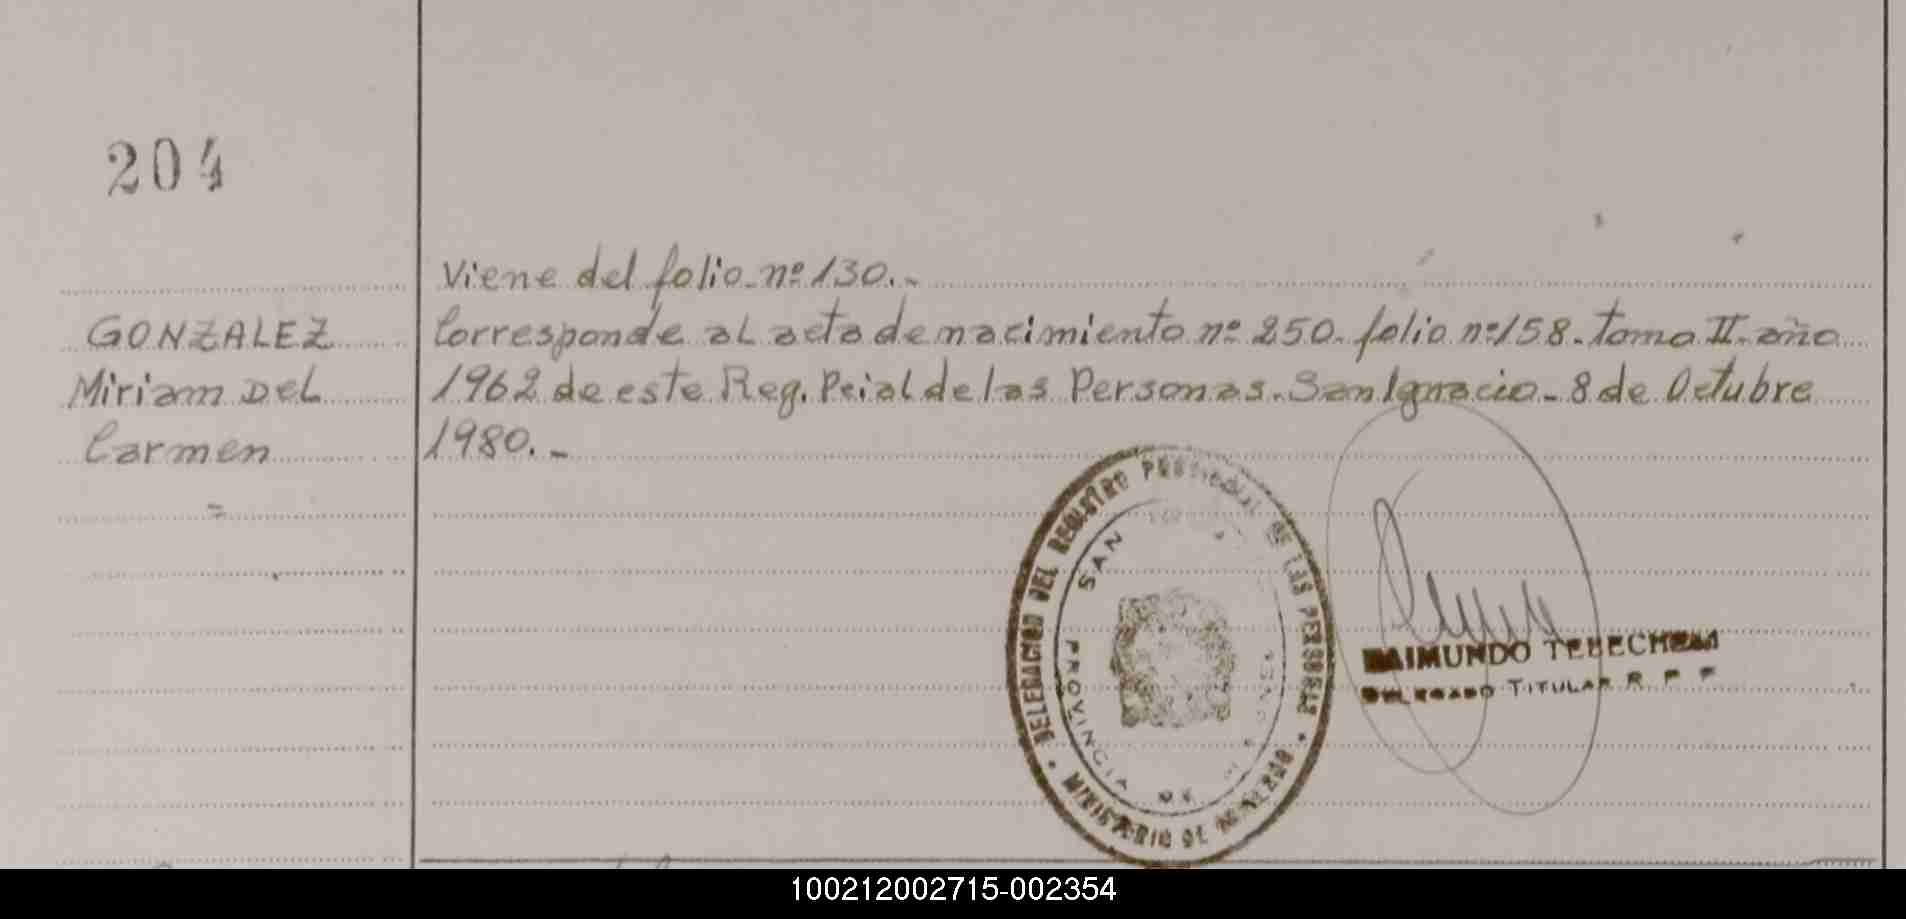 204
Viene del folio nº 130.-
GONZALEZ
Corresponde al acta de nacimiento nº 250- folio nº 158- tomo II- año
Miriam Del
1962 de este Reg. Pcial de las Personas. San Ignacio - 8 de Octubre
Carmen
1980.-
=
DELEGACION DEL REGISTRO PROVINCIAL DE LAS PERSONAS
SAN
PROVINCIA DE MISIONES
MINISTERIO DE GOBIERNO
RAIMUNDO
DELEGADO TITULAR R P P
100212002715-002354